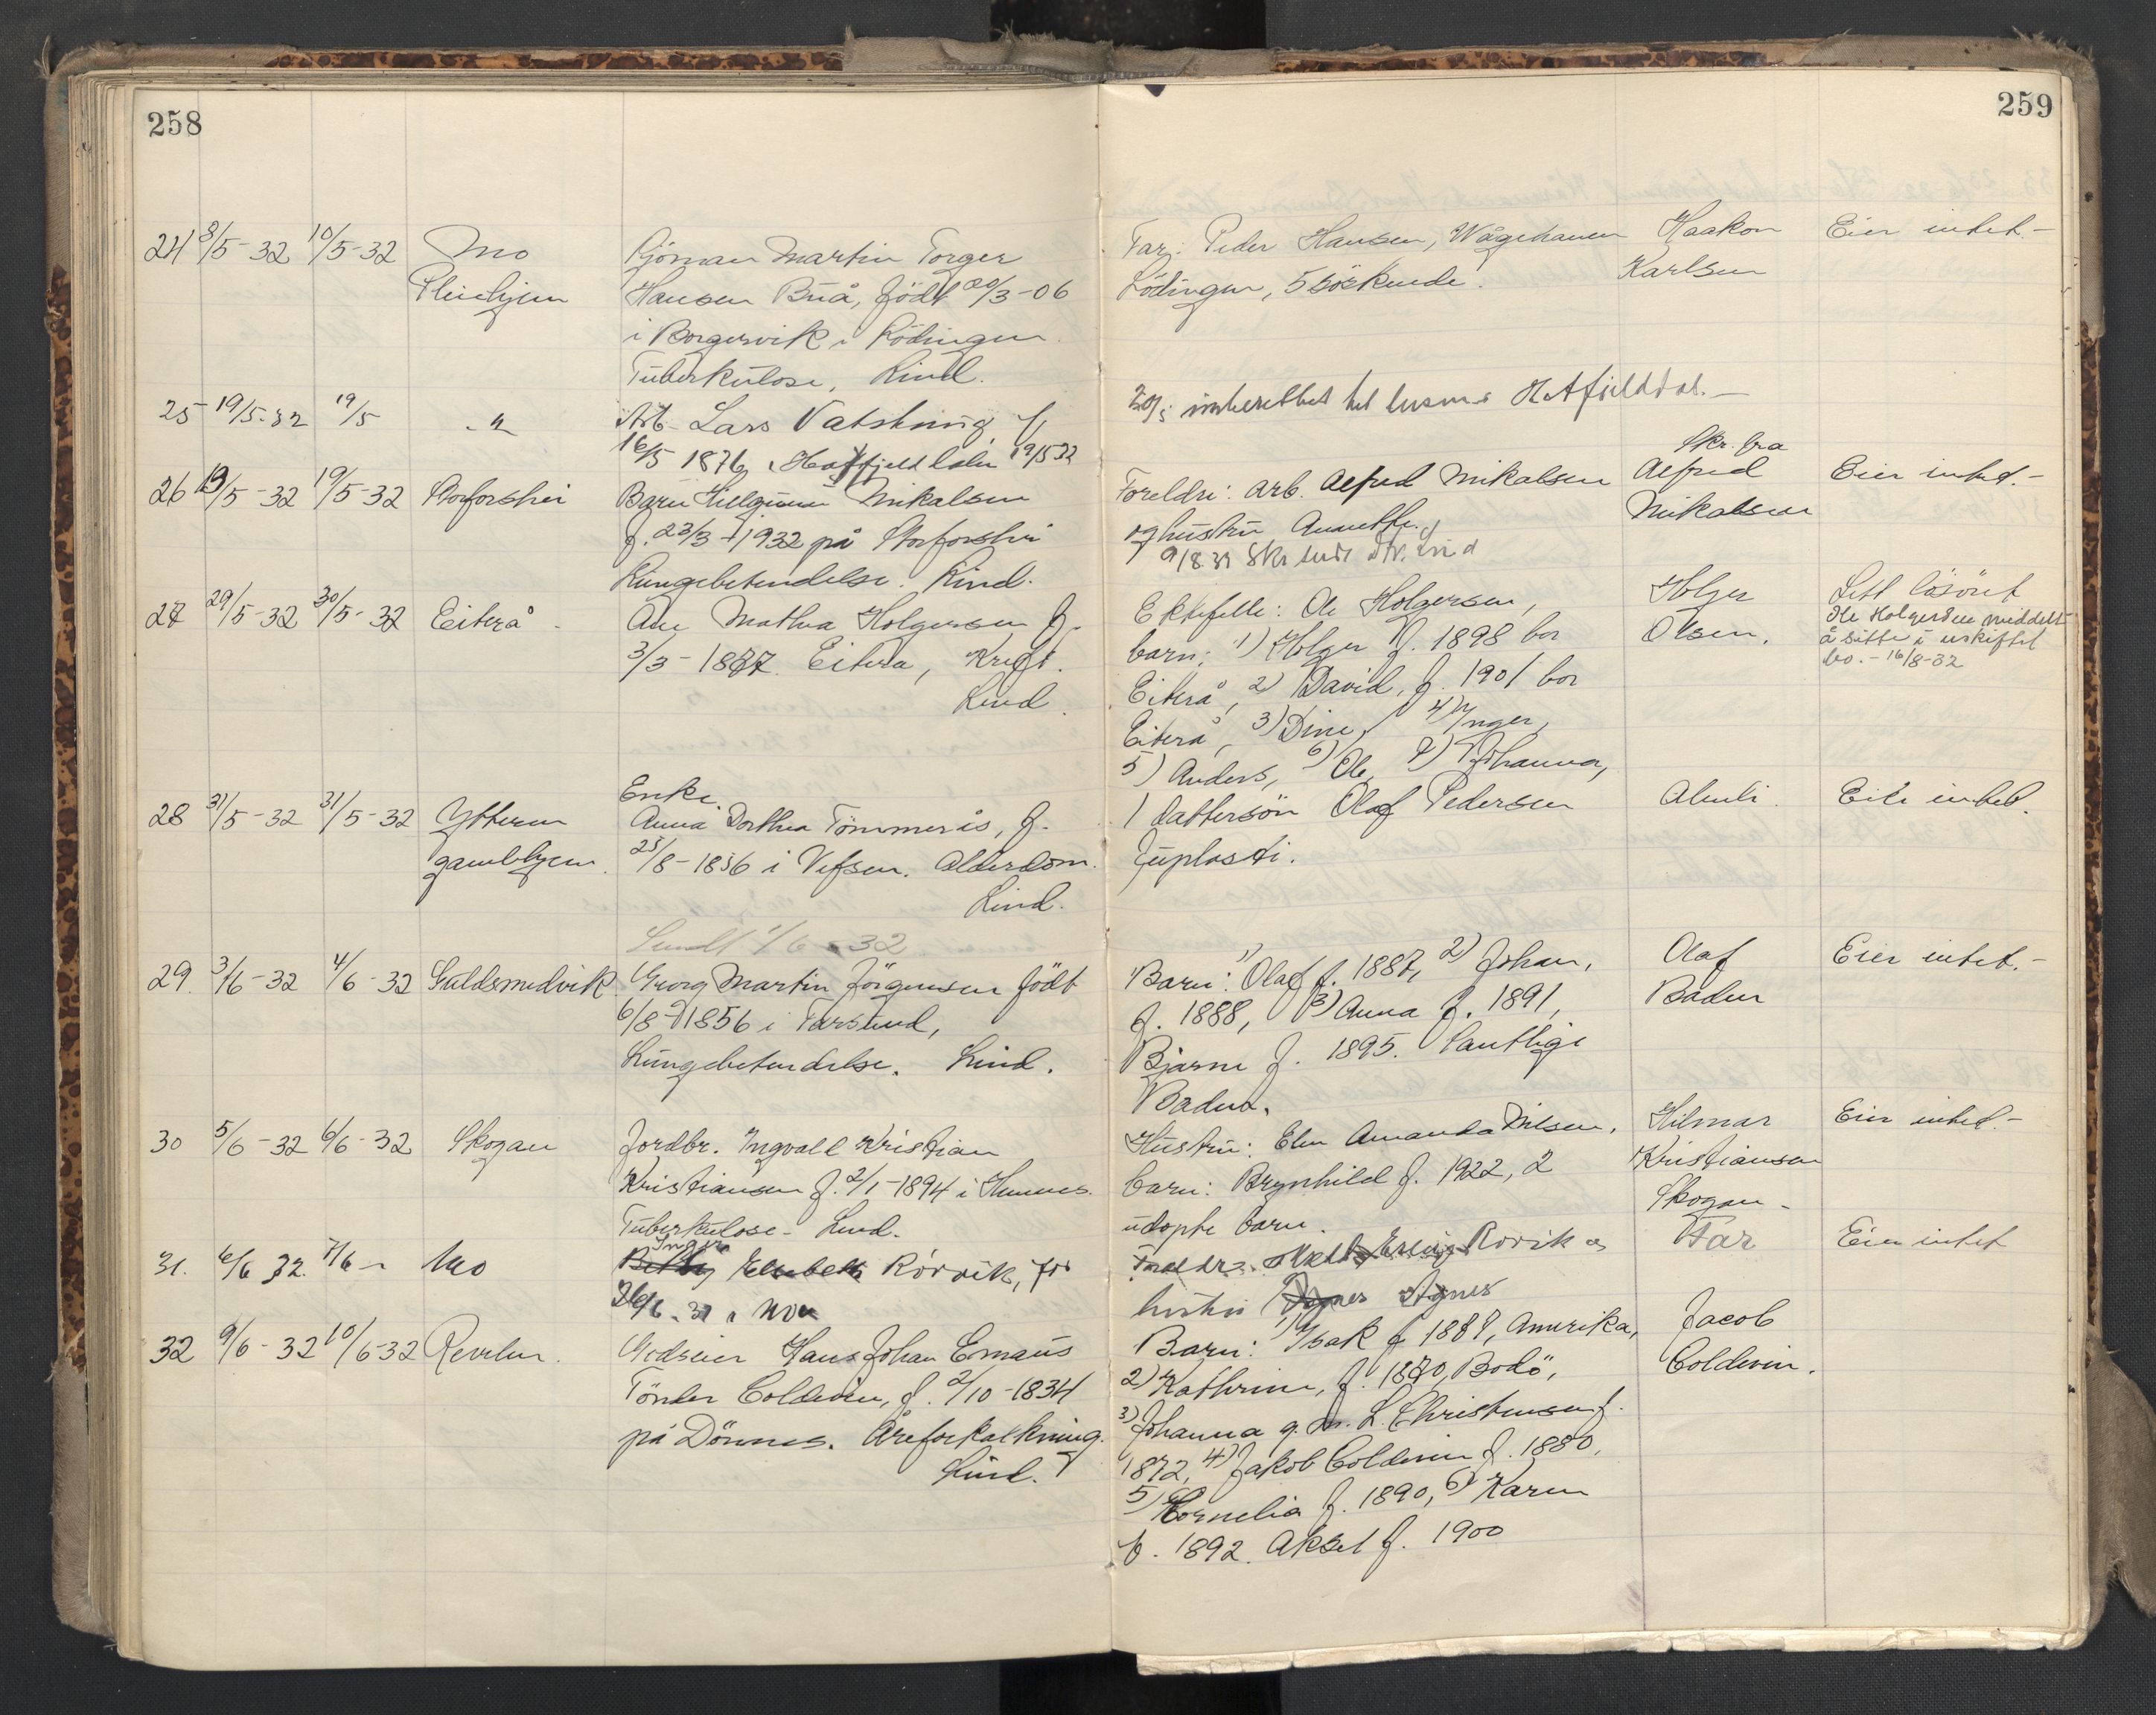 258
24 8/5-32 10/5-32 Mo Sjöman Martin Torger
Pleiehjem Hansen Buå, født 20/3-06
i Borgervik i Lödingen.
Tuberkulose. Lind.
25 19/5-32 19/5 -"- Arb. Lars Vatshaug f.
16/5 1876 i Hatfjelddalen 19/5 32
26 19/5-32 19/5-32 Storforshei Barn Mikalsen
f. 23/3-1932 på Storforshei
Lungebetendelse. Lind.
27 29/5-32 30/5-32 Eiterå Ane Mathea Holgersen f.
3/3-1837 Eiterå, Kreft.
Lind.
Enke.
28 31/5-32 31/5-32 Ytteren Anna Dorthea Tömmerås, f.
gamlehjem. 25/8-1836 i Vefsen. Alderdom.
Lind.
Sendt 1/6-32
29. 3/6-32 4/6-32 Guldsmedvik Georg Martin Jörgensen födt
6/8-1856 i Farsund,
Lungebetendelse. Lind.
30 5/6-32 6/6-32 Skogan Jordbr. Ingvald Kristian
Kristiansen f. 2/1-1894 i Hemnes.
Tuberkulose - Lind.
Inger
31. 6/6 32. 7/6 - Mo Betty Elisabeth Rörvik, fö
26/6-31 i Mo
32 9/6-32 10/6-32 Revelen. Godseier Hans Johan Emaus
Tönder Coldevin, f. 2/10-1834
på Dönnes. Åreforkalkning.
Lind.
259
Far: Peder Hansen, Vågehavn Haakon Eier intet.-
Lödingen, 5 söskende. Karlsen
20/5 innberettet til lensm. i Hatfjelddal.-
Skr. fra
Foreldre: arb. Alfred Mikalsen Alfred Eier intet.-
og hustru Annette. Mikalsen
9/8 32 Skr sendt
Ektefelle: Ole Holgersen, Holger Litt lösöre
barn: 1) Holger f. 1898 bor Olsen. Ole Holgersen meddelt
å sitte i uskiftet
bo. - 16/8-32
Eiterå, 2) David, f. 1901 bor
Eiterå, 3) Dine, 4) Inger,
5) Anders, 6) Ole, 7) Johanna,
1 dattersön Olaf Pedersen Eier intet.
Juplasti.
Barn: 1) Olaf f. 1887, 2) Johan, Olaf Eier intet.-
f. 1888, 3) Anna f. 1891, Baden
Bjarne f. 1895. Samtlige
Baden.
Hustru: Elen Amanda Nilsen, Hilmar Eier intet.-
barn: Brynhild f. 1922, 2 Kristiansen
udöpte barn. Skogan -
Foreldre: Rörvik og Far Eier intet
hustru Agnes Agnes
Barn: 1) Isak f 1889, Amerika, Jacob
2) Kathrine, f. 1870, Bodö, Coldevin.
3) Johanna g. m. L. Christensen f.
1872, 4) Jakob Coldevin f. 1880,
5) Cornelia f. 1890, 6) Karen
f. 1892. Aksel f. 1900